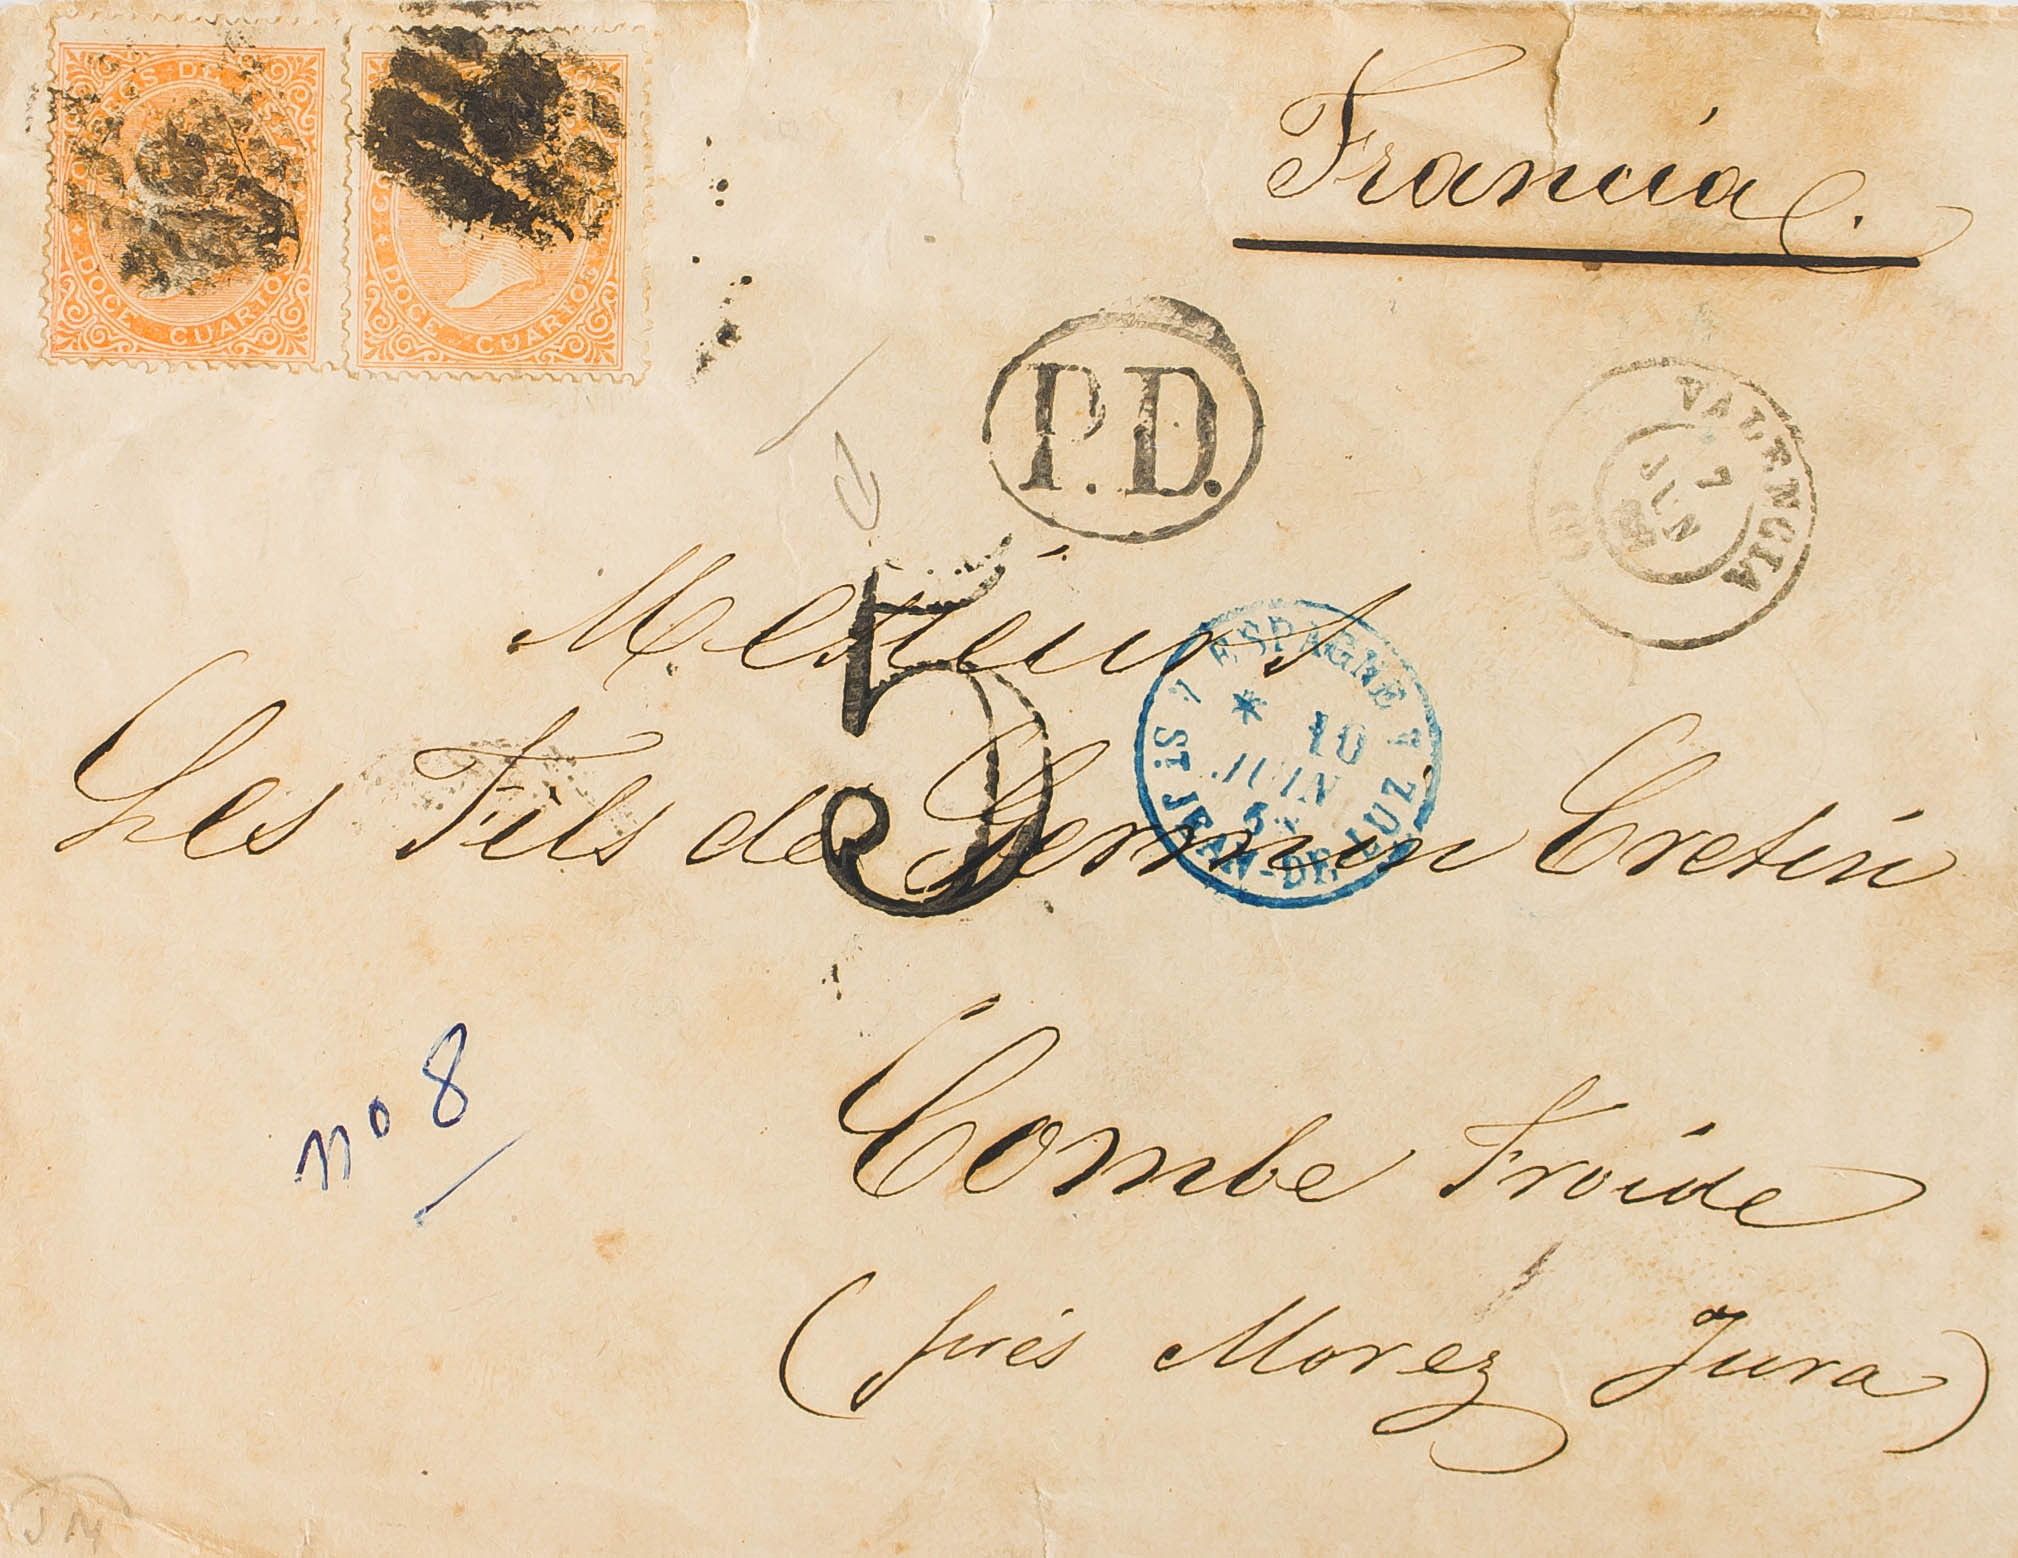 CORREOS DE
DOCE CUARTOS
DOCE CUARTOS
Francia
P.D.
VALENCIA
7
JUN
Messieurs
5
ESPAGNE
10
JUIN
ST JEAN-DE-LUZ
Les Fils de Germain Cretin
no 8
Combe Froide
(près Morez Jura)